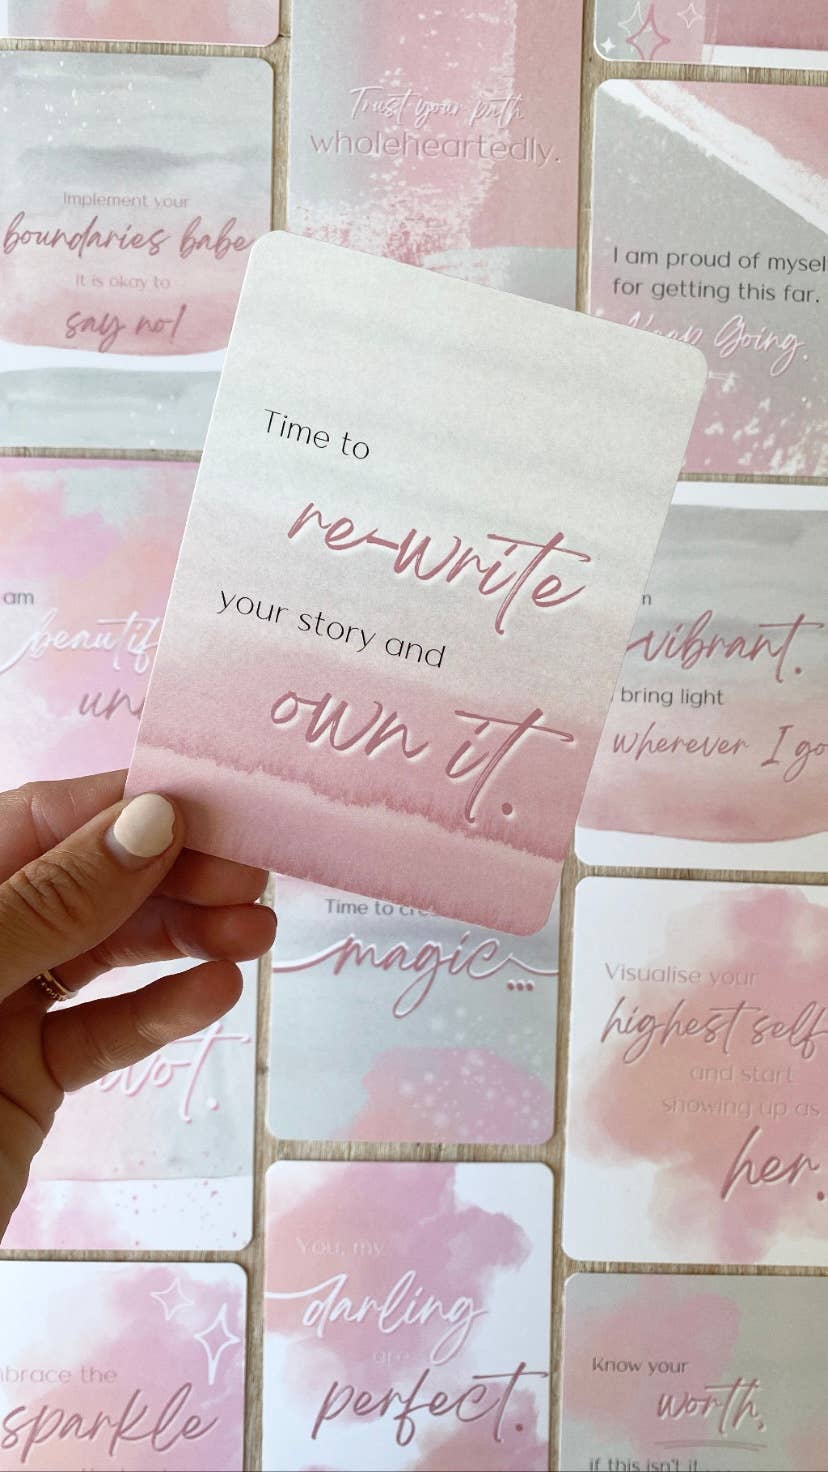 Trust your path
wholeheartedly.
Implement your
boundaries babe
It is okay to
say no!
I am proud of
for getting this far.
Going.
Time to
re-write
your story and
own it.
am
vibrant.
bring light
wherever I go
Time to
magic...
Visualise your
highest self
and start
showing up as
her.
You, my
darling
are
perfect.
the
sparkle
Know your
worth,
if this isn't it